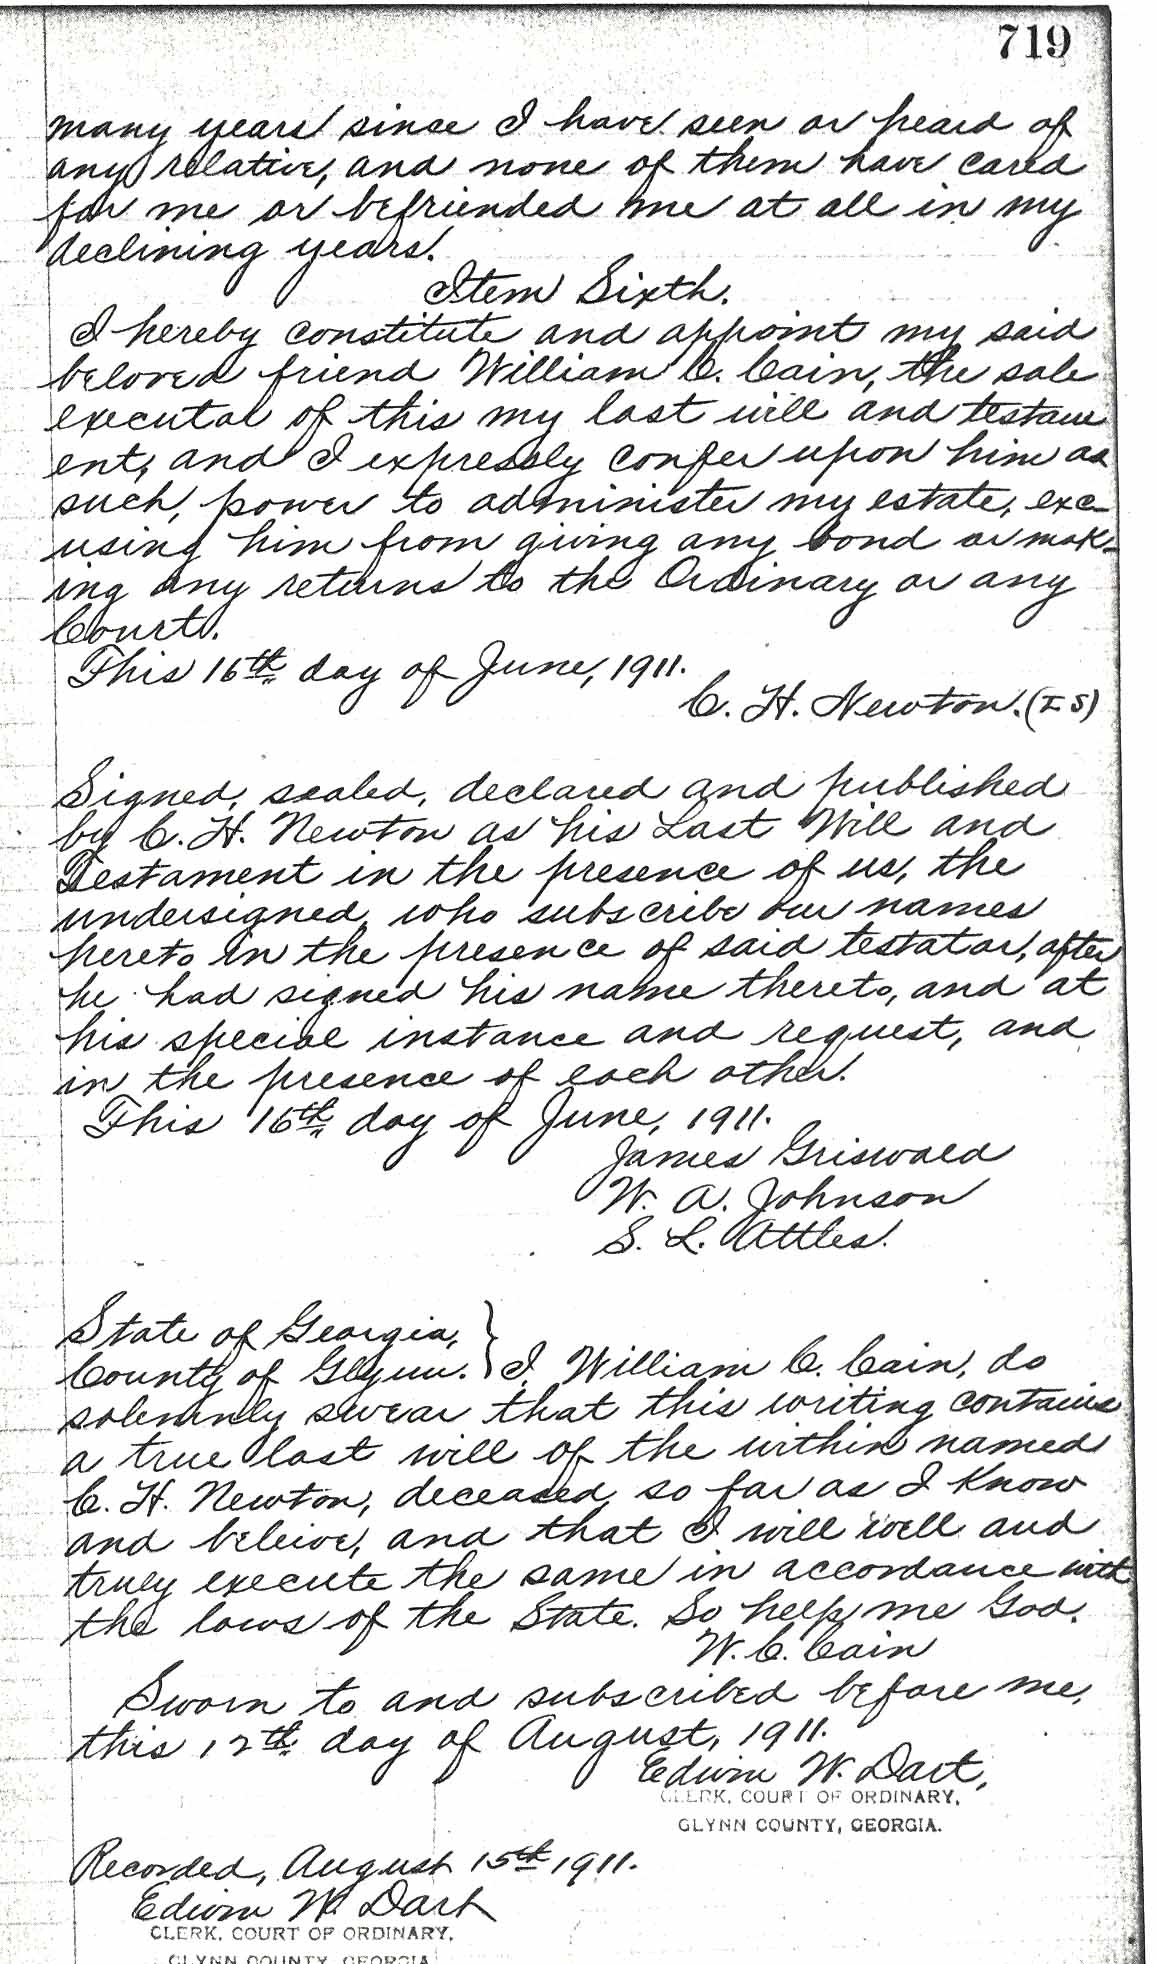 719
many years since I have seen or heard of
any relative, and none of them have cared
for me or befriended me at all in my
declining years.
Item Sixth.
I hereby constitute and appoint my said
beloved friend William C. Cain, the sole
executor of this my last will and testam
ent, and I expressly confer upon him as
such, power to administer my estate, exc-
using him from giving any bond or mak-
ing any returns to the Ordinary or any
Court.
This 16th day of June, 1911.
C. H. Newton. (L S)
Signed, sealed, declared and published
by C. H. Newton as his Last Will and
Testament in the presence of us, the
undersigned, who subscribe our names
hereto in the presence of said testator, after
he had signed his name thereto, and at
his special instance and request, and
in the presence of each other.
This 16th day of June, 1911.
James Griswold
W. A. Johnson
S. L. Attles.
State of Georgia,
County of Glynn. } I, William C. Cain, do
solemnly swear that this writing contains
a true last will of the within named
C. H. Newton, deceased, so far as I know
and beleive, and that I will well and
truly execute the same in accordance with
the laws of the State. So help me God.
W. C. Cain
Sworn to and subscribed before me,
this 12th day of August, 1911.
Edwin W. Dart,
CLERK, COURT OF ORDINARY,
GLYNN COUNTY, GEORGIA.
Recorded, August 15th 1911.
Edwin W. Dart
CLERK, COURT OF ORDINARY,
GLYNN COUNTY, GEORGIA